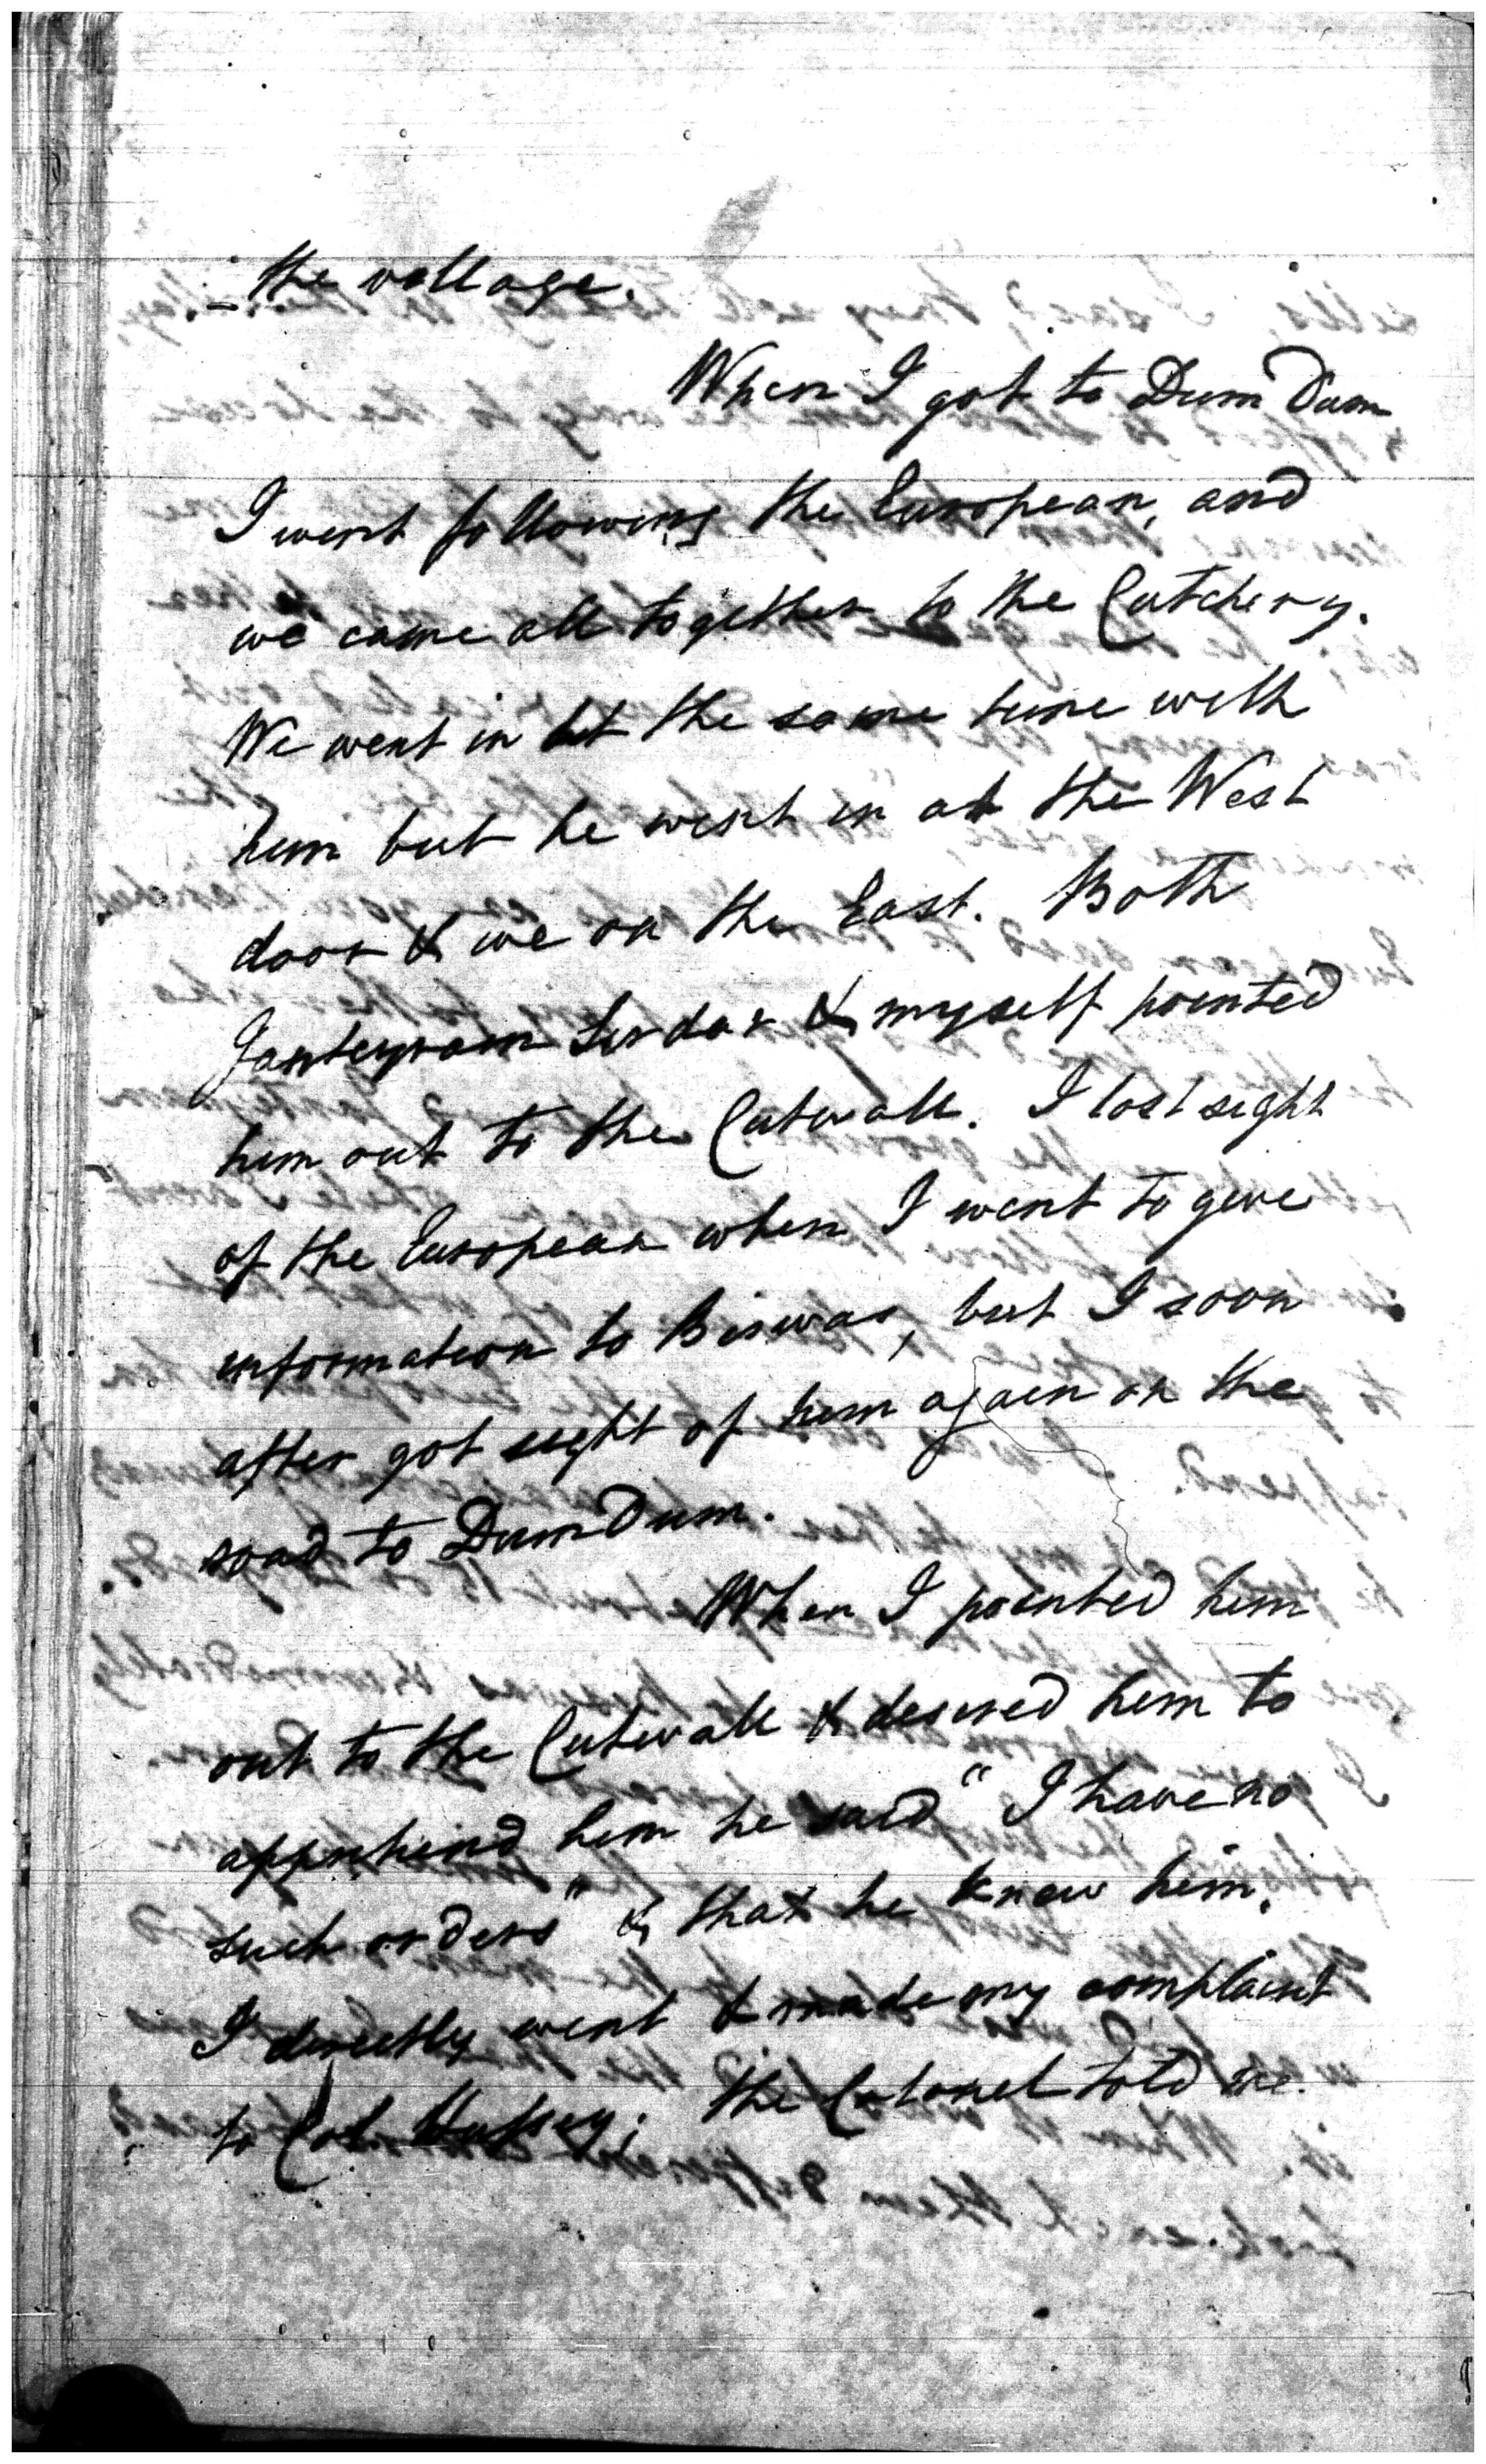 the village.
When I got to Dum Dum
I went following the European, and
we came all together to the Cutchery.
We went in at the same time with
him but he went in at the West
door & we on the East. Both
Janteyram Sirdar & myself pointed
him out to the Cutwall. I lost sight
of the European when I went to give
information to Biswas, but I soon
after got sight of him again on the
road to DumDum.
When I pointed him
out to the Cutwall & desired him to
apprehend him he said "I have no
such orders" & that he knew him.
I directly went & made my complaint
to Col Hussey; the Colonel told me